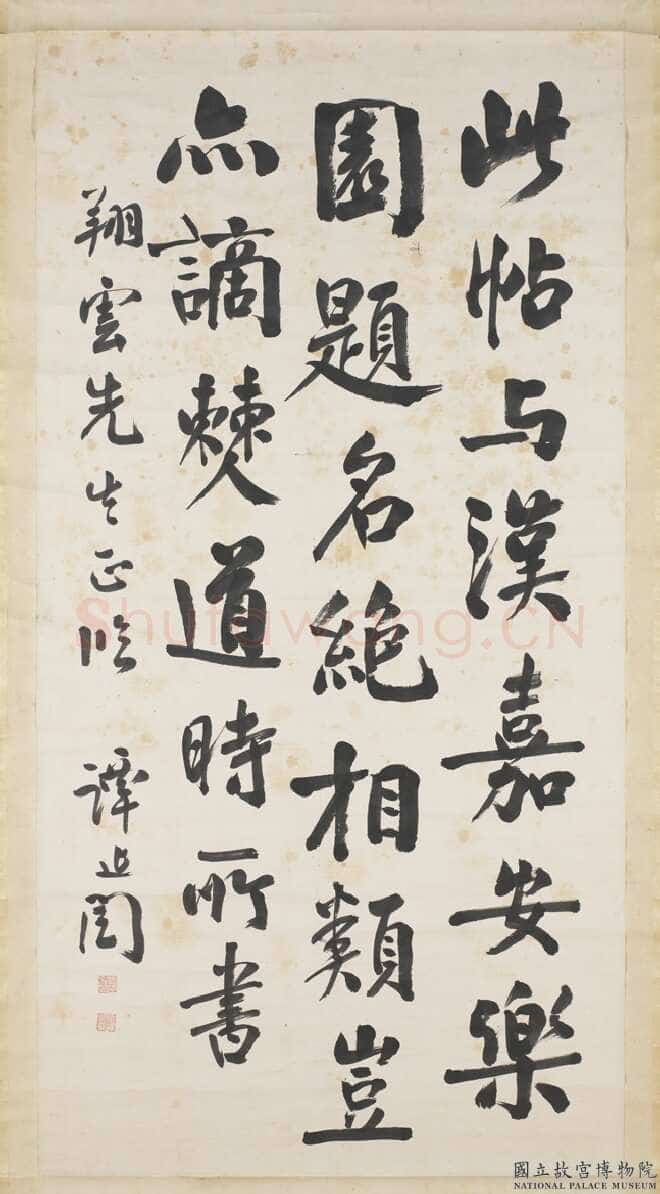 此帖与漢嘉安樂
園題名絶相類豈
亦謫僰道時所書
翔雲先生正临
譚延闓
Shufawang.CN
國立故宮博物院
NATIONAL PALACE MUSEUM